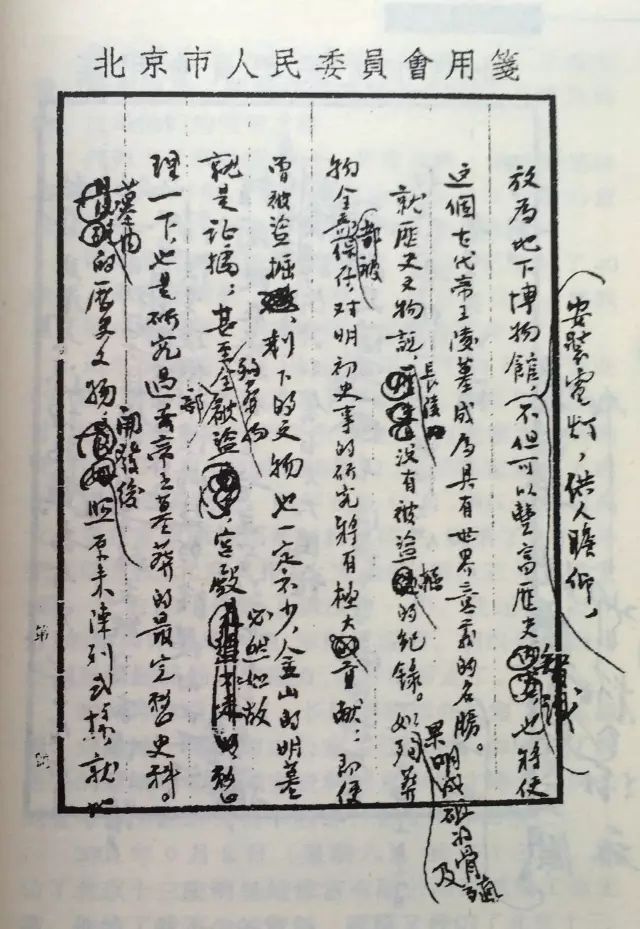 北京市人民委員會用箋
安裝電灯，供人瞻仰，
放為地下博物館，不但可以豐富歷史知識也將使
这個古代帝王陵墓成為具有世界意義的名勝。
就歷史文物說，長陵沒有被盜掘的紀錄。如果明成祖的骨殖及殉葬
物全都被保存，对明初史事的研究將有極大貢献；即使
曾被盜掘，剩下的文物也一定不少，金山的明墓
就是証據；甚至全部被盜，宮殿必然如故，整
理一下，也是研究過去帝王墓葬的最完整史料。
墓内的歷史文物，開發後照原来陳列式樣，就
第